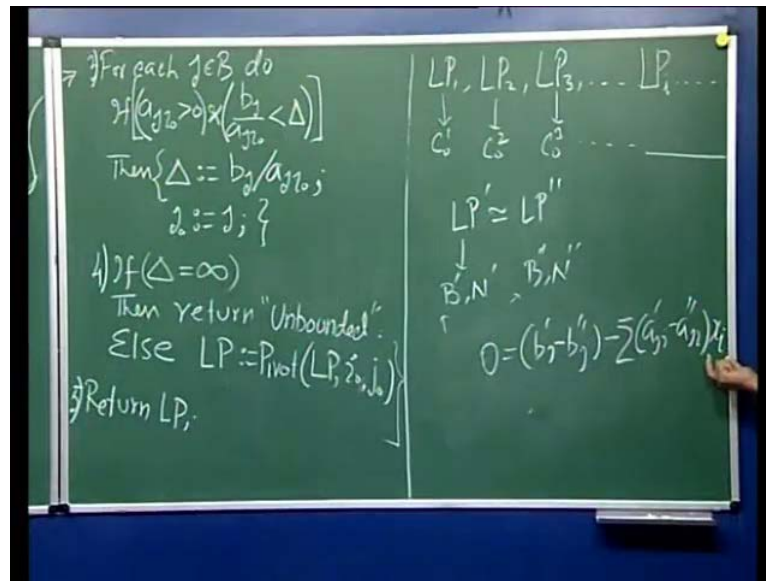 3) For each j∈B do
If[(a_{ji₀}>0)&(b_j/a_{ji₀}<Δ)]
Then{Δ:=b_j/a_{ji₀};
j₀:=j;}
4) If(Δ=∞)
Then return "Unbounded".
Else LP:=Pivot(LP,i₀,j₀)}
5) Return LP;
LP₁, LP₂, LP₃, .... LP_i ....
↓ ↓ ↓
C₀¹ C₀² C₀³ .....
LP' ≃ LP''
↓
B',N' , B'',N''
0=(b'_j-b''_j)-Σ(a'_{ji}-a''_{ji})x_i